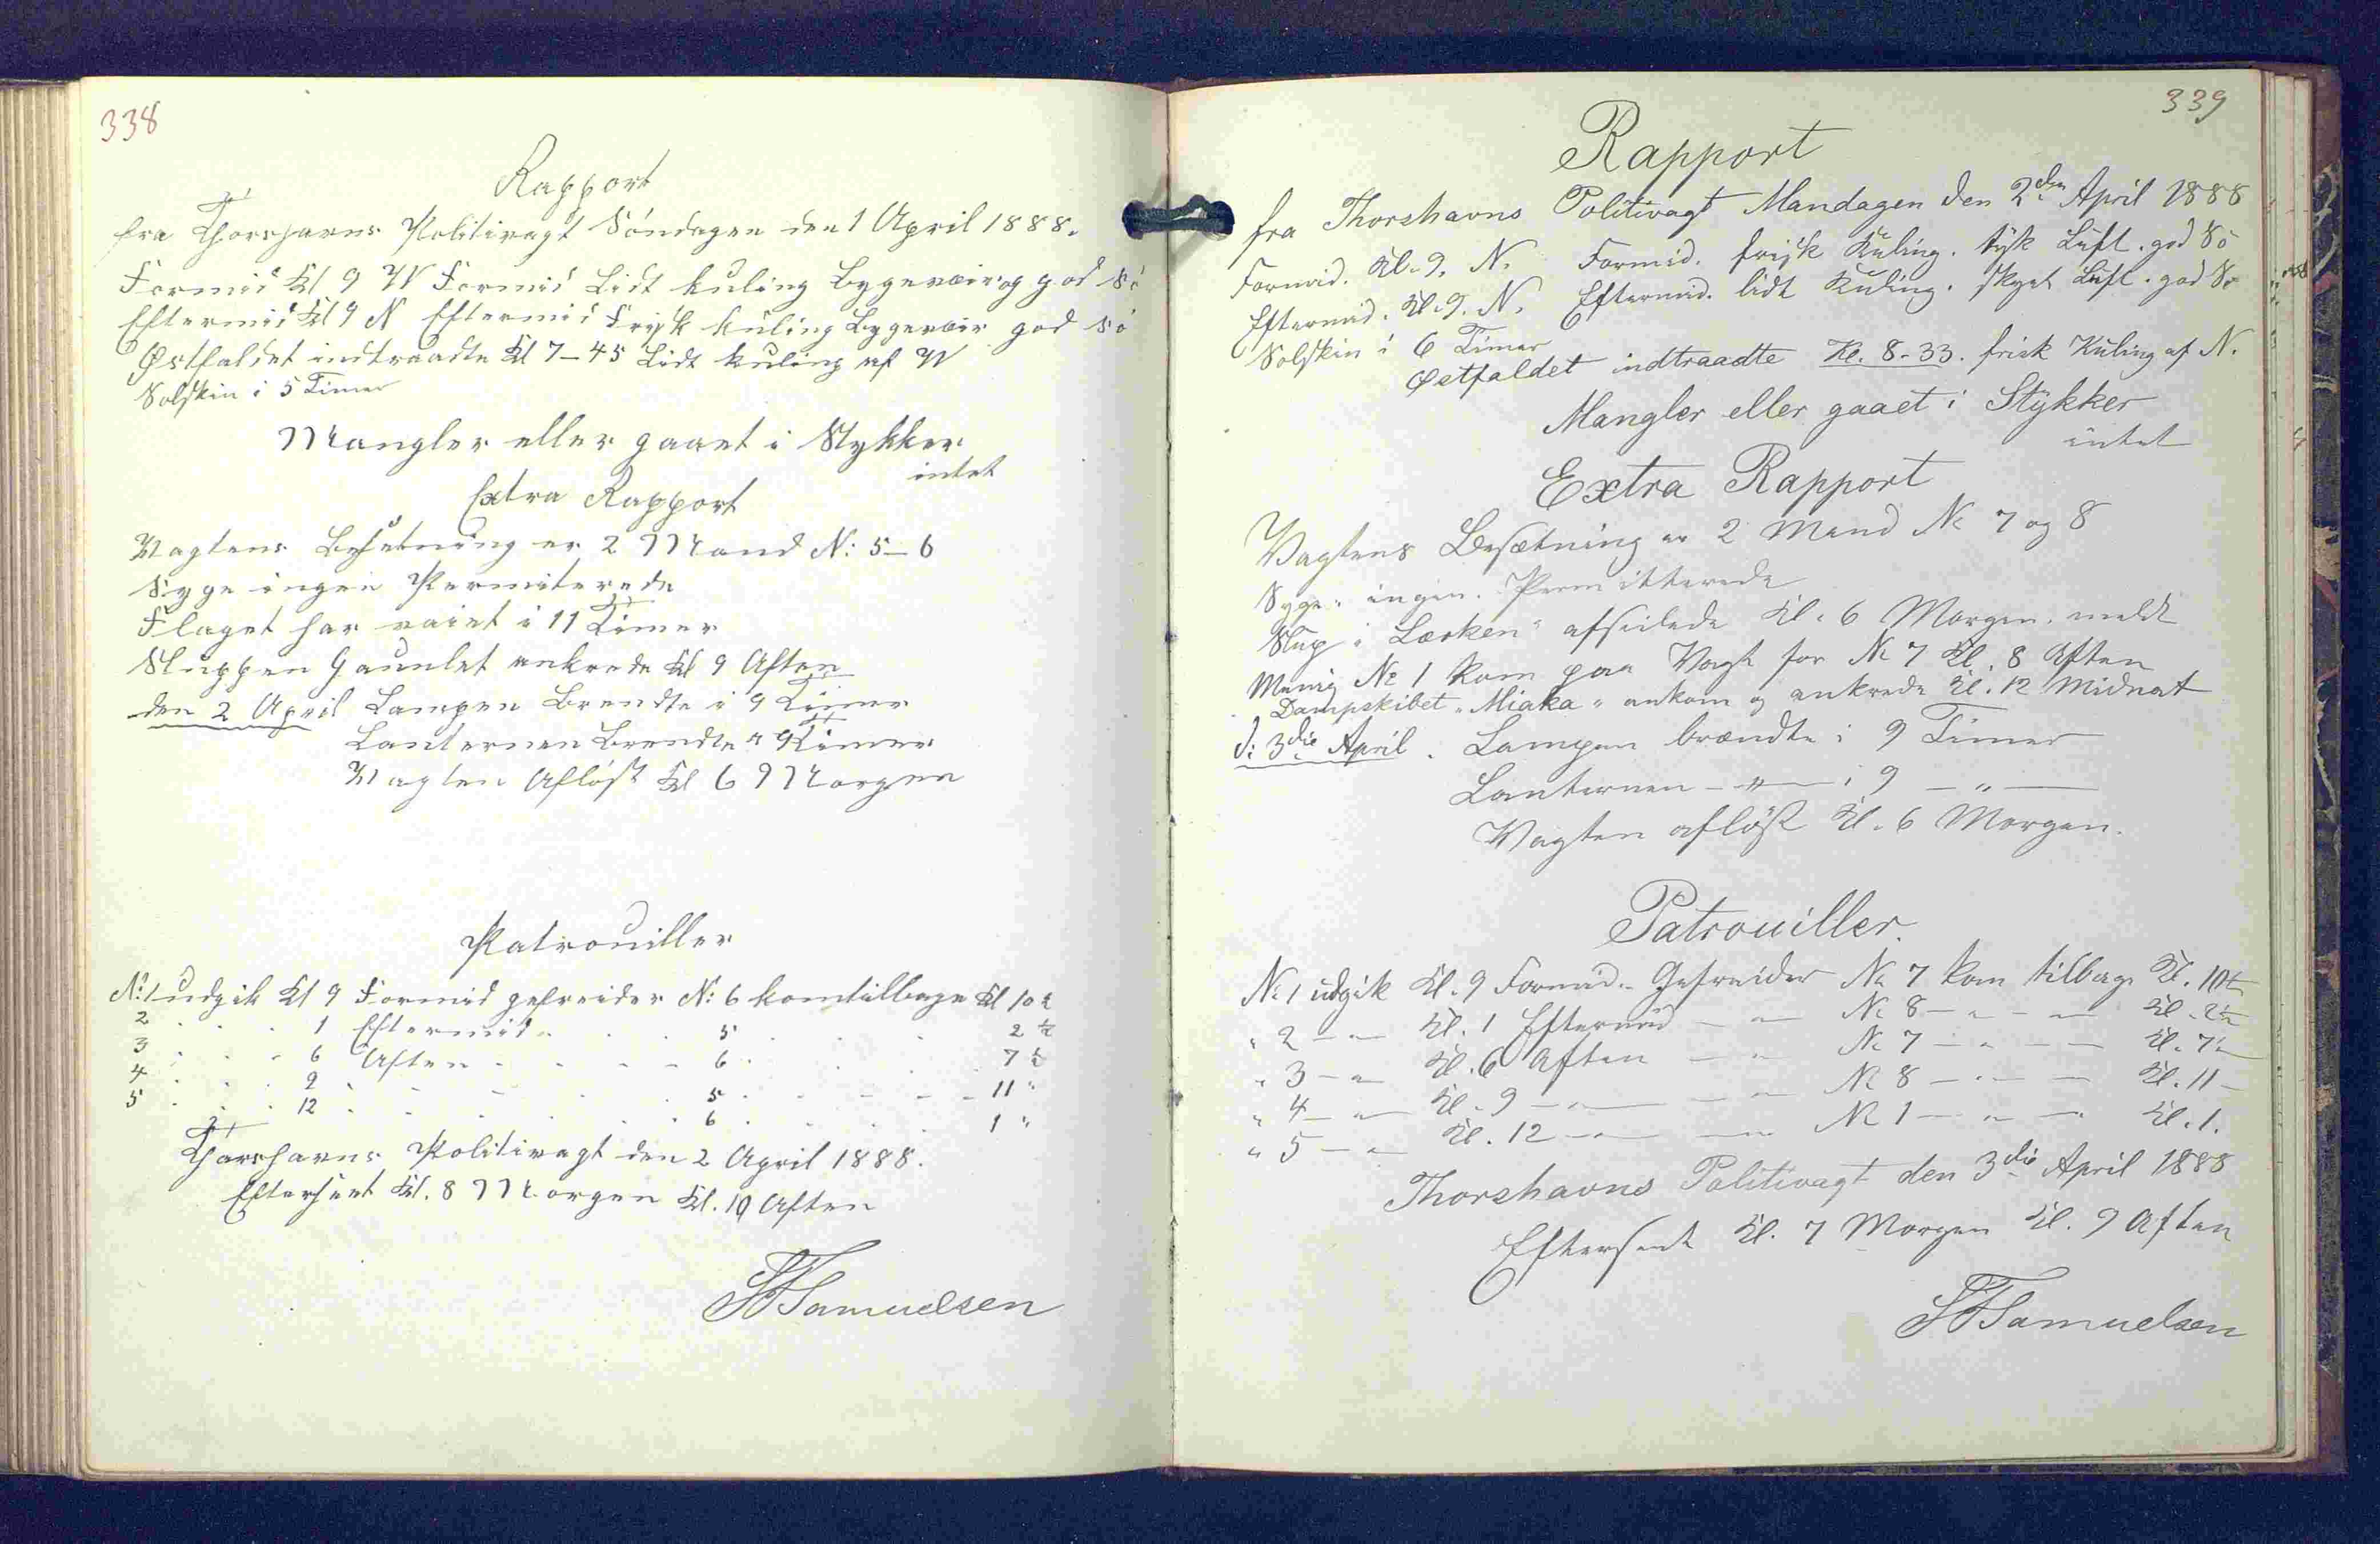 338
Rapport
fra Thorshavns Politivagt Söndagen den 1 April 1888.
Formid Kl 9 N Formid Lidt kuling Bygeveir og god Sö
Eftermid Kl 9 N Eftermid Frisk kuling Bygeveir god Sö
Østfaldet indtraadte Kl 7-45 Lidt kuling af N
Solskin i 5 Timer
Mangler eller gaaet i Stykker
intet
Extra Rapport
Vagtens Besetning er 2 Mand N: 5-6
Syge ingen Permiterede
Flaget har vaiet i 11 Timer
Sluppen Gauntlet ankrede Kl 9 Aften
den 2 April Lampen Brendte i 9 Timer
Lanternen Brendte " 9 Timer
Vagten Aflöst Kl 6 Morgen
Patrouiller
N: 1 udgik Kl 9 Formid gefreider N: 6 kom tilbage Kl 10 ½
2 " " " 1 Eftermid " " 5 " " " 2 ½
3 " " " 6 Aften " " 6 " " " 7 ½
4 " " " 9 " " " 5 " " " 11 "
5 " " " 12 " " " 6 " " " 1 "
Thorshavns Politivagt den 2 April 1888.
Efterseet Kl. 8 Morgen Kl. 10 Aften
Samuelsen
339
Rapport
fra Thorshavns Politivagt Mandagen den 2den April 1888
Formid. Kl. 9. N. Formid. frisk Kuling. tyk Luft. god Sö
Eftermid. Kl. 9. N. Eftermid. lidt Kuling. skyet Luft. god Sö
Solskin i 6 Timer
Østfaldet indtraadte Kl. 8-33. frisk Kuling af N.
Mangler eller gaaet i Stykker
intet
Extra Rapport
Vagtens Besætning er 2 Mand No 7 og 8
Syge " ingen. Permitterede
Slup " Lærken " afseilede Kl. 6 Morgen. meldt
Menig No 1 kom paa Vagt for No 7 Kl. 8 Aften
Dampskibet " Miaka " ankom og ankrede Kl. 12 Midnat
d: 3die April. Lampen brændte i 9 Timer
Lanternen - " - i 9 - " -
Vagten aflöst Kl. 6 Morgen.
Patrouiller.
No 1 udgik Kl. 9 Formid. Gefreider No 7 kom tilbage Kl. 10½
" 2 - " - Kl. 1 Eftermid - " - No 8 - " - " - Kl. 2½
" 3 - " - Kl. 6 Aften - " - No 7 - " - - Kl. 7½
" 4 - " - Kl. 9 - " - - " - No 8 - " - - Kl. 11 -
" 5 - " - Kl. 12 - " - - " - No 1 - " - " - Kl. 1.
Thorshavns Politivagt den 3die April 1888
Efterseet Kl. 7 Morgen Kl. 9 Aften
Samuelsen